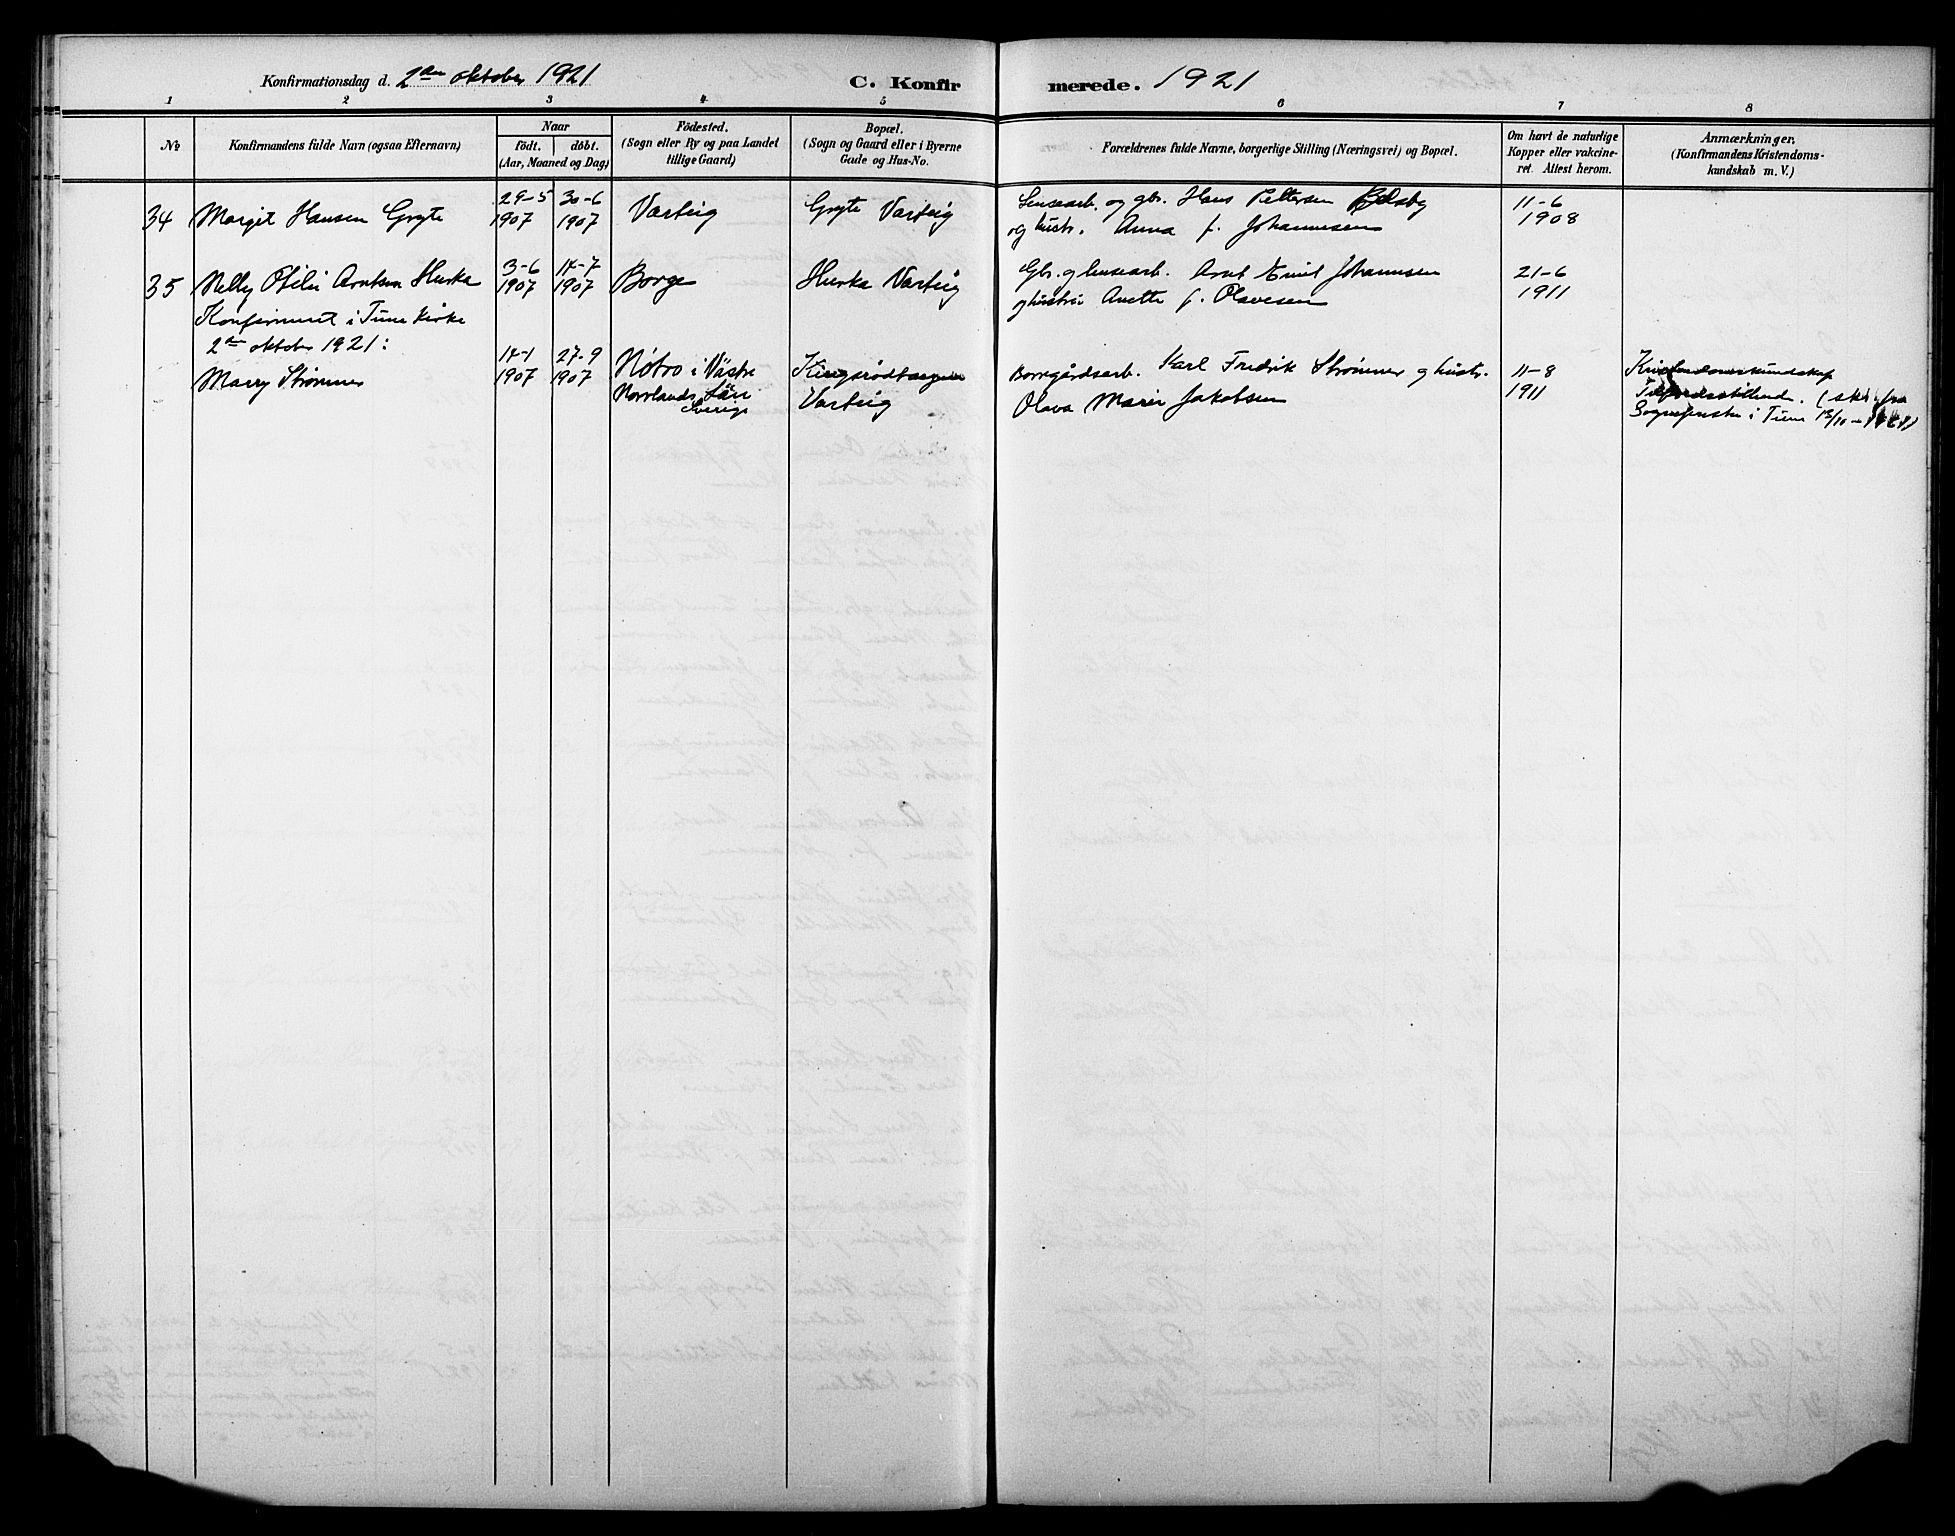 Konfirmationsdag d. 2den oktober 1921 C. Konfirmerede. 1921
1 2 3 4 5 6 7 8
No
Konfirmandens fulde Navn (ogsaa Efternavn)
Naar
födt. döbt.
(Aar, Maaned og Dag)
Födested.
(Sogn eller By og paa Landet
tillige Gaard)
Bopæl.
(Sogn og Gaard eller i Byerne
Gade og Hus-No.
Forældrenes fulde Navne, borgerlige Stilling (Næringsvei) og Bopæl.
Om havt de naturlige
Kopper eller vakcine-
ret. Attest herom.
Anmærkninger.
(Konfirmandens Kristendoms-
kundskab m. V.)
34 Margit Hansen Gryte 29-5 1907 30-6 1907 Varteig Gryte Varteig
Lensearb. og gbr. Hans Pettersen
og hustr. Anna f. Johannesen
11-6
1908
35 Nelly Otilie Arntsen Hurka 3-6 1907 14-7 1907 Borge Hurka Varteig
Gbr. og lensearb. Arnt Emil Johannesen
og hustru Anette f. Olavesen
21-6
1911
Konfirmeret i Tune Kirke
2den oktober 1921:
Marry Strømner 14-1 1907 27-9 1907
i Västre
Norrlands Län
Sverige
Varteig
Borregårdsarb. Karl Fredrik Strømner og hustr.
Olava Marie Jakobsen
11-8
1911
Kristendomskundskap
Tilfredsstillende. (skr. fra
Sognepresten i Tune